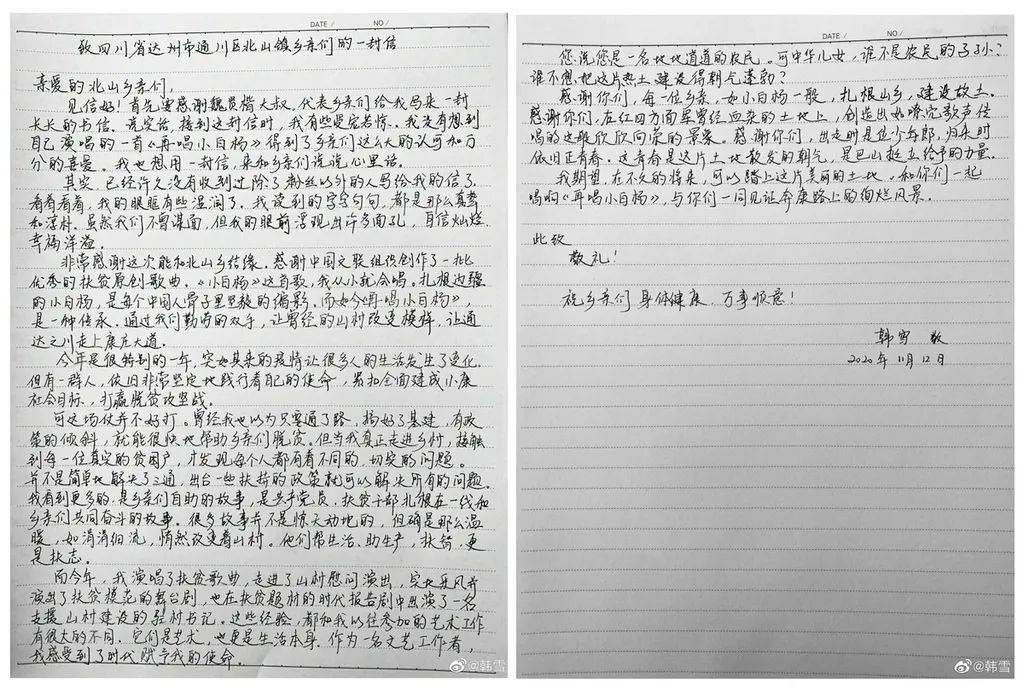 DATE / NO /
致四川省达州市通川区北山镇乡亲们的一封信
亲爱的北山乡亲们,
见信好!首先要感谢魏员楷大叔,代表乡亲们给我写来一封
长长的书信。说实话,接到这封信时,我有些受宠若惊。我没有想到
自己演唱的一首《再唱小白杨》得到了乡亲们这么大的认可和万
分的喜爱。我也想用一封信,来和乡亲们说说心里话。
其实,已经许久没有收到过除了粉丝以外的人写给我的信了。
看着看着,我的眼眶有些湿润了。我读到的字字句句,都是那么真挚
和淳朴。虽然我们不曾谋面,但我的眼前浮现出许多面孔,自信灿烂,
幸福洋溢。
非常感谢这次能和北山乡结缘。感谢中国文联组织创作了一批
优秀的扶贫原创歌曲。《小白杨》这首歌,我从小就会唱。扎根边疆
的小白杨,是每个中国人骨子里坚毅的缩影。而如今《再唱小白杨》,
是一种传承。通过我们勤劳的双手,让曾经的山村改变模样,让通
达之川走上康庄大道。
今年是很特别的一年,突如其来的疫情让很多人的生活发生了变化。
但有一群人,依旧非常坚定地践行着自己的使命,紧扣全面建成小康
社会目标,打赢脱贫攻坚战。
可这场仗并不好打。曾经我也以为只要通了路,搞好了基建,有政
策的倾斜,就能很快地帮助乡亲们脱贫。但当我真正走进乡村,接触
到每一位真实的贫困户,才发现每个人都有着不同的、切实的问题。
并不是简单地解决了三通,出台一些扶持的政策就可以解决所有的问题。
我看到更多的,是乡亲们自助的故事,是共产党员、扶贫干部扎根在一线和
乡亲们共同奋斗的故事。很多故事并不是惊天动地的,但确是那么温
暖,如涓涓细流,悄然改变着山村。他们帮生活、助生产,扶智、更
是扶志。
而今年,我演唱了扶贫歌曲,走进了山村慰问演出,实地采风并
演出了扶贫模范的舞台剧,也在扶贫题材的时代报告剧中出演了一名
支援山村建设的驻村书记。这些经验,都和我以往参加的艺术工作
有很大的不同。它们是艺术,也更是生活本身。作为一名文艺工作者,
我感受到了时代赋予我的使命。
@韩雪
DATE / NO /
您说您是一名地地道道的农民。可中华儿女,谁不是农民的子孙?
谁不想把这片热土建设得朝气蓬勃?
感谢你们,每一位乡亲,如小白杨一般,扎根山乡,建设故土。
感谢你们,在红四方面军曾经血染的土地上,创造出如嘹亮歌声传
唱的这般欣欣向荣的景象。感谢你们,出走时是追梦年郎,归来时
依旧正青春。这青春是这片土地散发的朝气,是巴山挺立给予的力量。
我期望,在不久的将来,可以踏上这片美丽的土地。和你们一起
唱响《再唱小白杨》,与你们一同见证奔康路上的绚烂风景。
此致
敬礼!
祝乡亲们 身体健康 万事顺意!
韩雪 敬
2020年11月12日
@韩雪